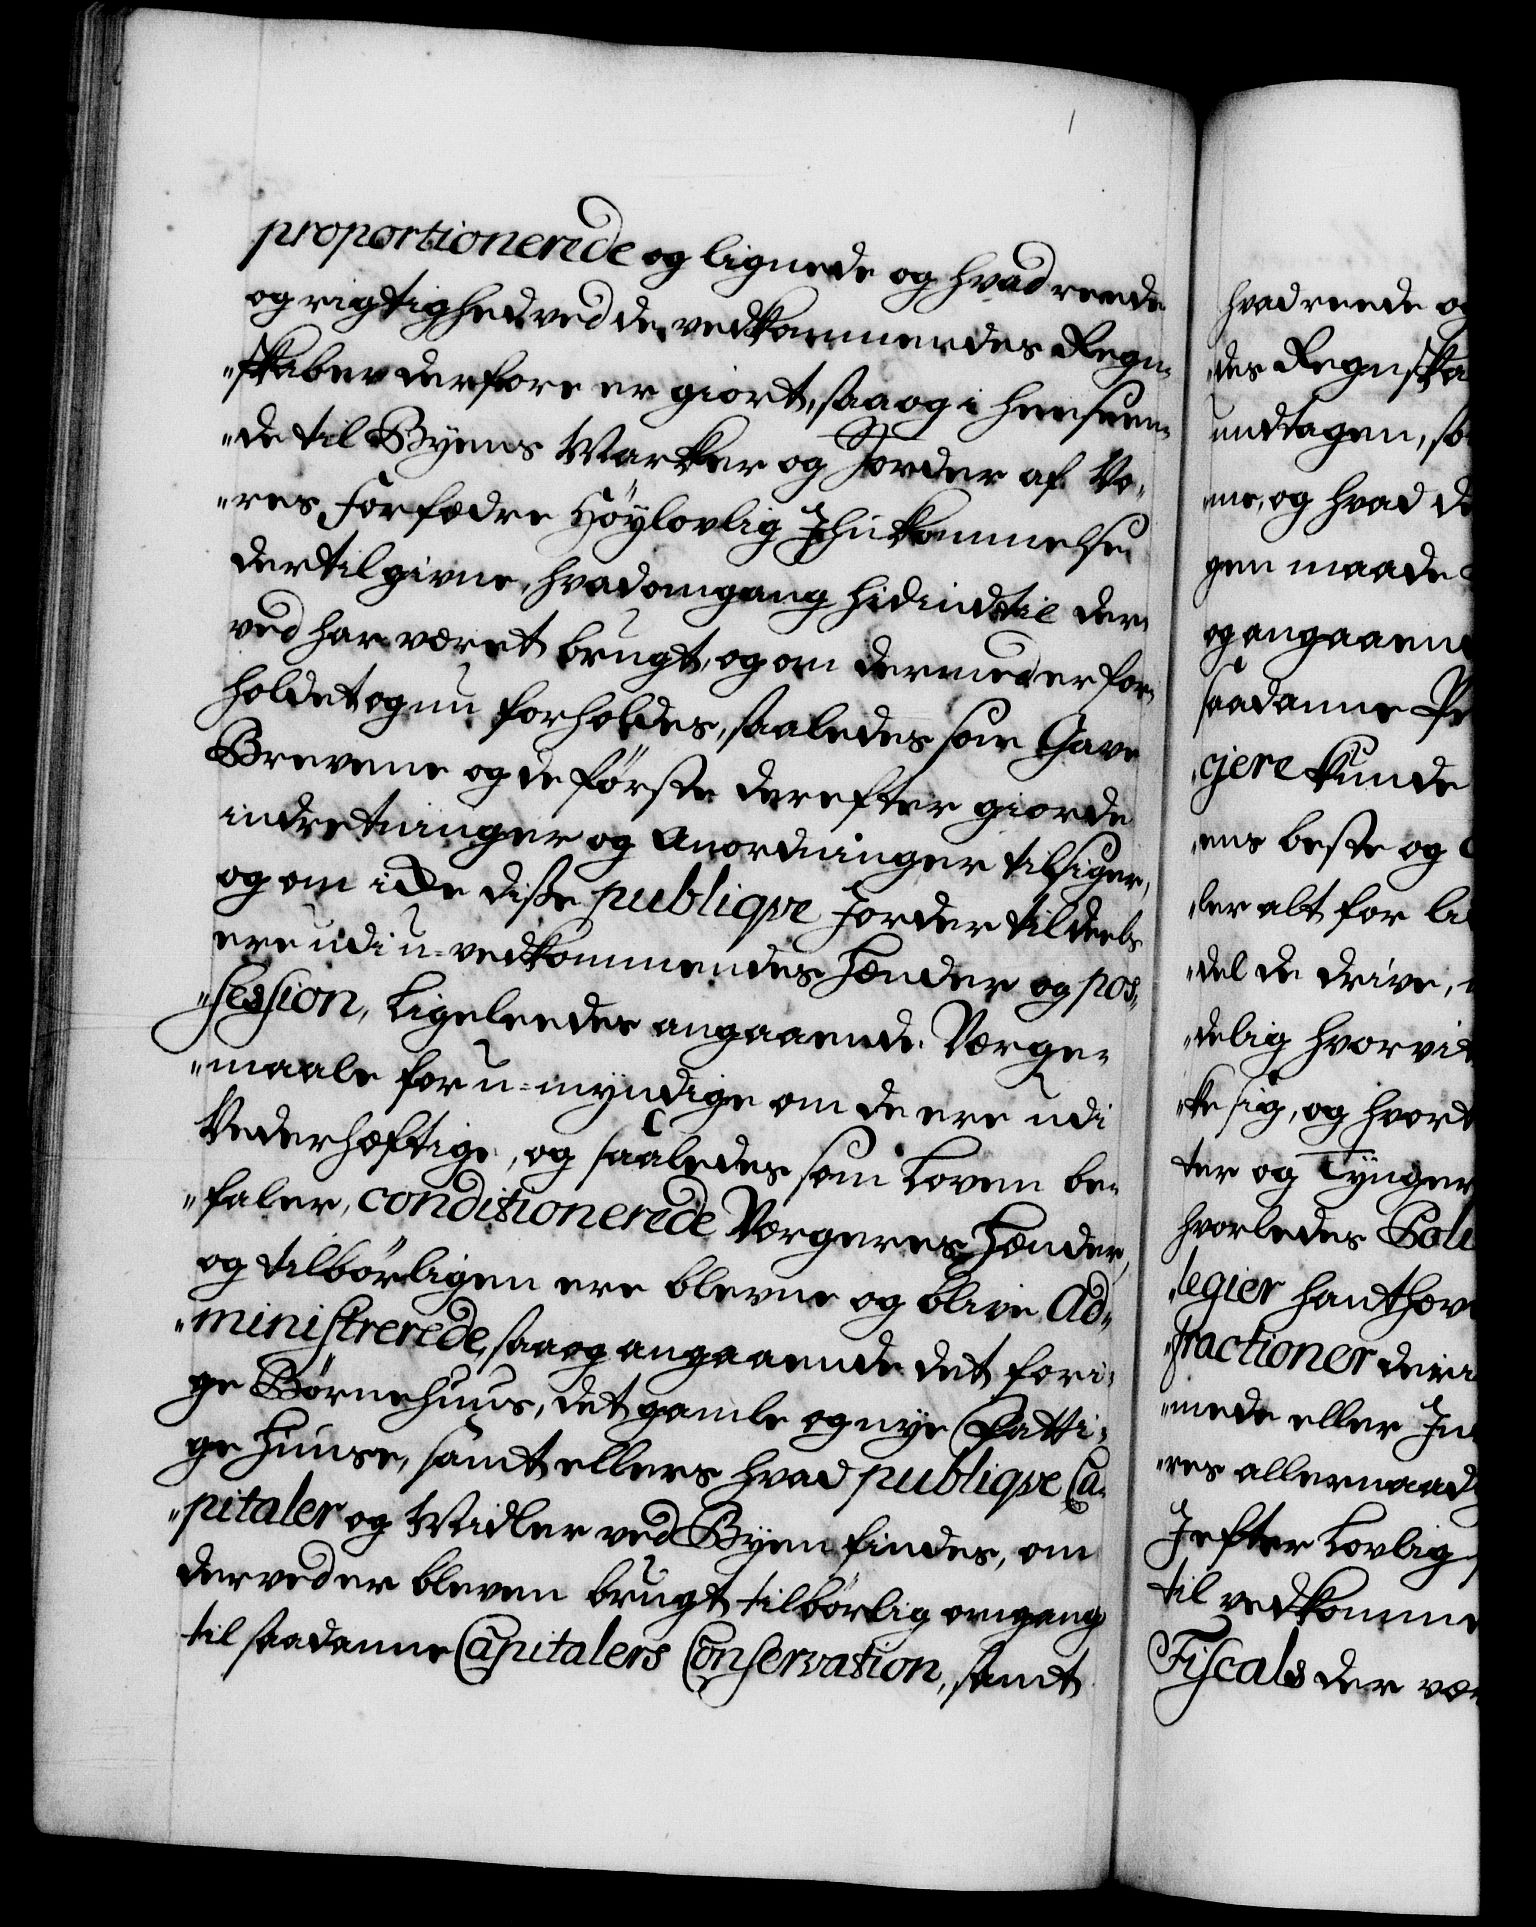 proportionerede og lignede og hvad reede
og rigtighed ved de vedkommendes Regn-
"skaber derfore er giort, saa og i henseen-
"de til Byens Marker og Jorder af Vo-
"res Forfædre Høylovlig Ihukommelse
dertil givne, hvad omgang hidindtil der-
ved har været brugt, og om dermed er for-
holdet og nu forholdes, saaledes som Gave
Brevene og de første derefter giorde
indretninger og Anordninger tilsiger,
og om icke disse publiqve Jorder til deels
ere udi u-vedkommendes Hænder og pos-
"session, Ligeleedes angaaende Værge-
"maale for u-myndige om de ere udi
Vederhæftige, og saaledes som Loven be-
"faler, conditionerede Værgeres Hænder,
og tilbørligen ere blevne og blive Ad-
"ministrerede, saa og angaaende det fori-
ge Børnehuus, det gamle og nye Fatti-
ge Huuse, samt ellers hvad publiqve Ca-
"pitaler og Midler ved Byen findes, om
derved er bleven brugt tilbørlig omgang
til saadanne Capitalers Conservation, samt
hvad reede og
"des Regnska
undtagen, so
"me, og hvad de
gen maade
og angaaend
saadanne Pr
"gere kunde
"ens beste og
"ler alt for li
"del de drive,
"delig hvorvit
"ke sig, og hvort
ter og Tynger
hvorledes Poli
"legier handthæv
"fractioner deri
"mede eller In
"res allernaad
Jefter Lovlig
til vedkomme
Fiscals der vær